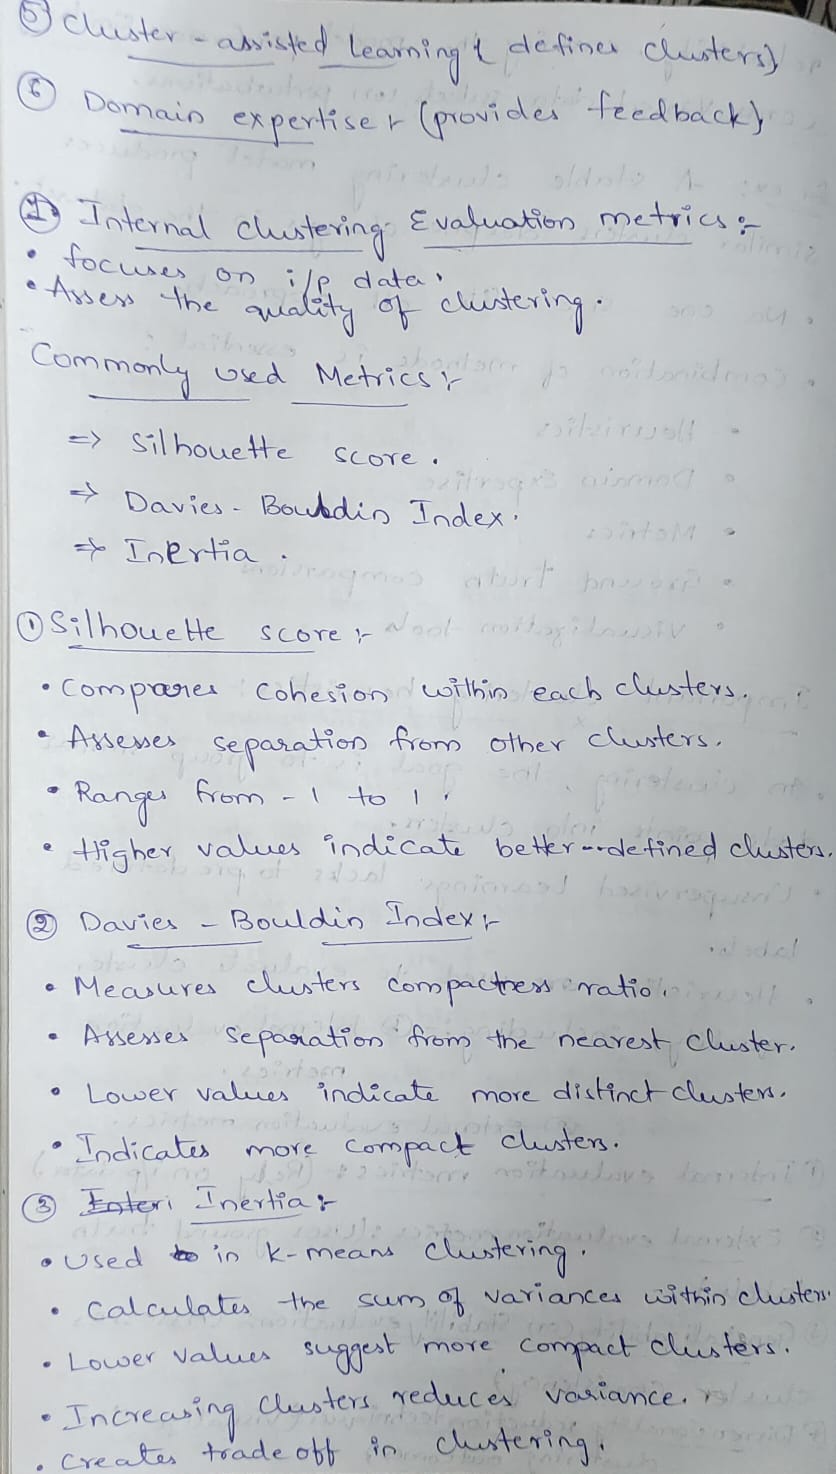 ⑤ Cluster-assisted Learning { defines clusters}
⑥ Domain expertise :- (provides feedback}
① Internal clustering Evaluation metrics :-
• focuses on i/p data.
• Assess the quality of clustering.
Commonly used Metrics :-
=> Silhouette score.
=> Davies-Bouldin Index.
=> Inertia.
① Silhouette score :-
• Compares cohesion within each clusters.
• Assesses separation from other clusters.
• Ranges from -1 to 1.
• Higher values indicate better-defined clusters.
② Davies-Bouldin Index :-
• Measures clusters compactness ratio.
• Assesses separation from the nearest cluster.
• Lower values indicate more distinct clusters.
• Indicates more compact clusters.
③ Inertia :-
• Used in K-means clustering.
• Calculates the sum of variances within clusters.
• Lower values suggest more compact clusters.
• Increasing clusters reduces variance.
• Creates trade off in clustering.